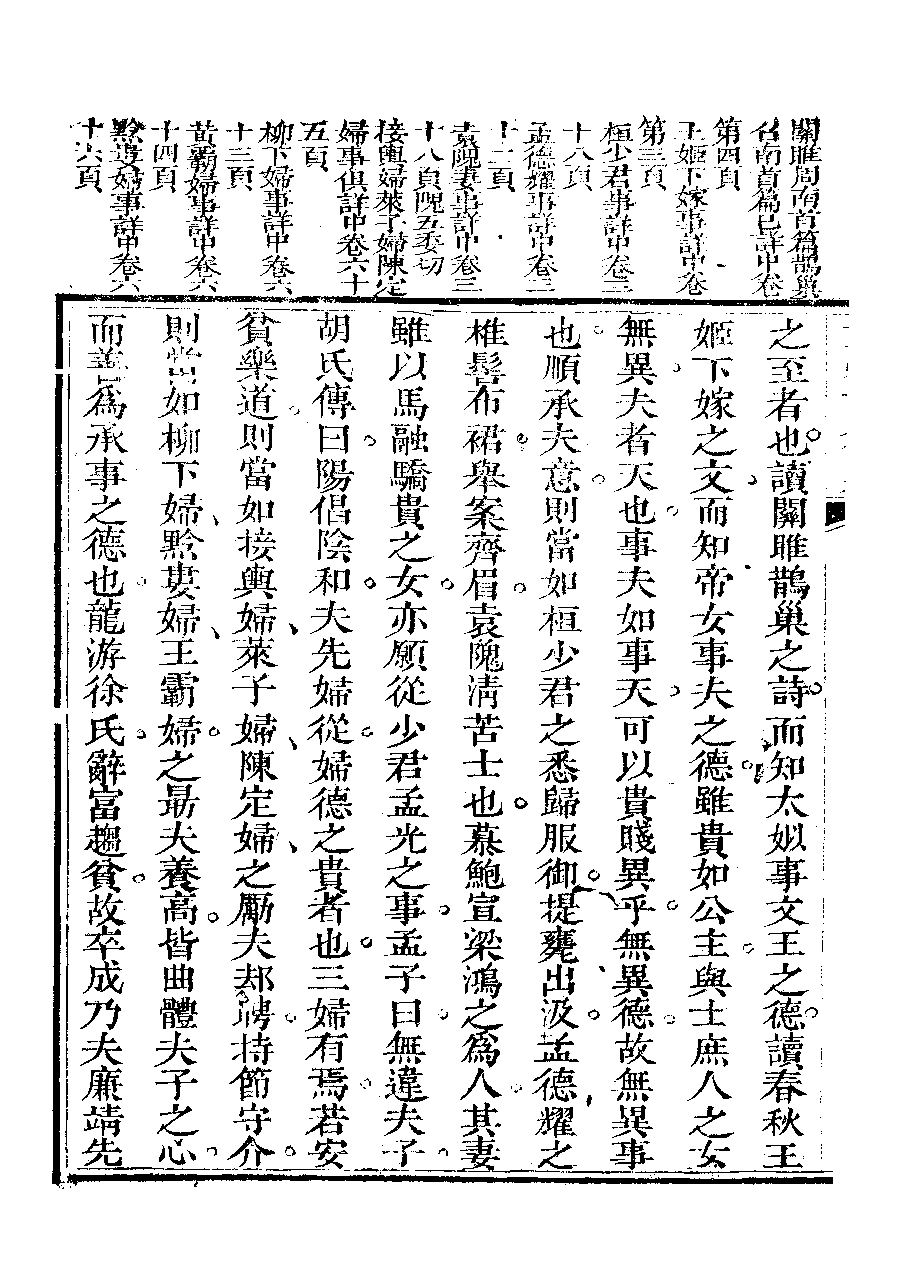 關雎周南首篇鵲巢
召南首篇已詳中卷
第四頁
王姬下嫁事詳中卷
第三頁
桓少君事詳中卷三
十八頁
孟德耀事詳中卷三
十二頁
袁隗妻事詳中卷三
十八頁隗五委切
接輿婦萊子婦陳定
婦事俱詳中卷六十
五頁
柳下婦事詳中卷六
十三頁
黃霸婦事詳中卷六
十四頁
黔婁婦事詳中卷六
十六頁
之至者也讀關雎鵲巢之詩而知太姒事文王之德讀春秋王
姬下嫁之文而知帝女事夫之德雖貴如公主與士庶人之女
無異夫者天也事夫如事天可以貴賤異乎無異德故無異事
也順承夫意則當如桓少君之悉歸服御提甕出汲孟德耀之
椎髻布裙舉案齊眉袁隗淸苦士也慕鮑宣梁鴻之爲人其妻
雖以馬融驕貴之女亦願從少君孟光之事孟子曰無違夫子
胡氏傳曰陽倡陰和夫先婦從婦德之貴者也三婦有焉若安
貧樂道則當如接輿婦萊子婦陳定婦之勵夫却聘持節守介
則當如柳下婦黔婁婦王霸婦之勗夫養高皆曲體夫子之心
而善爲承事之德也龍游徐氏辭富趨貧故卒成乃夫廉靖先